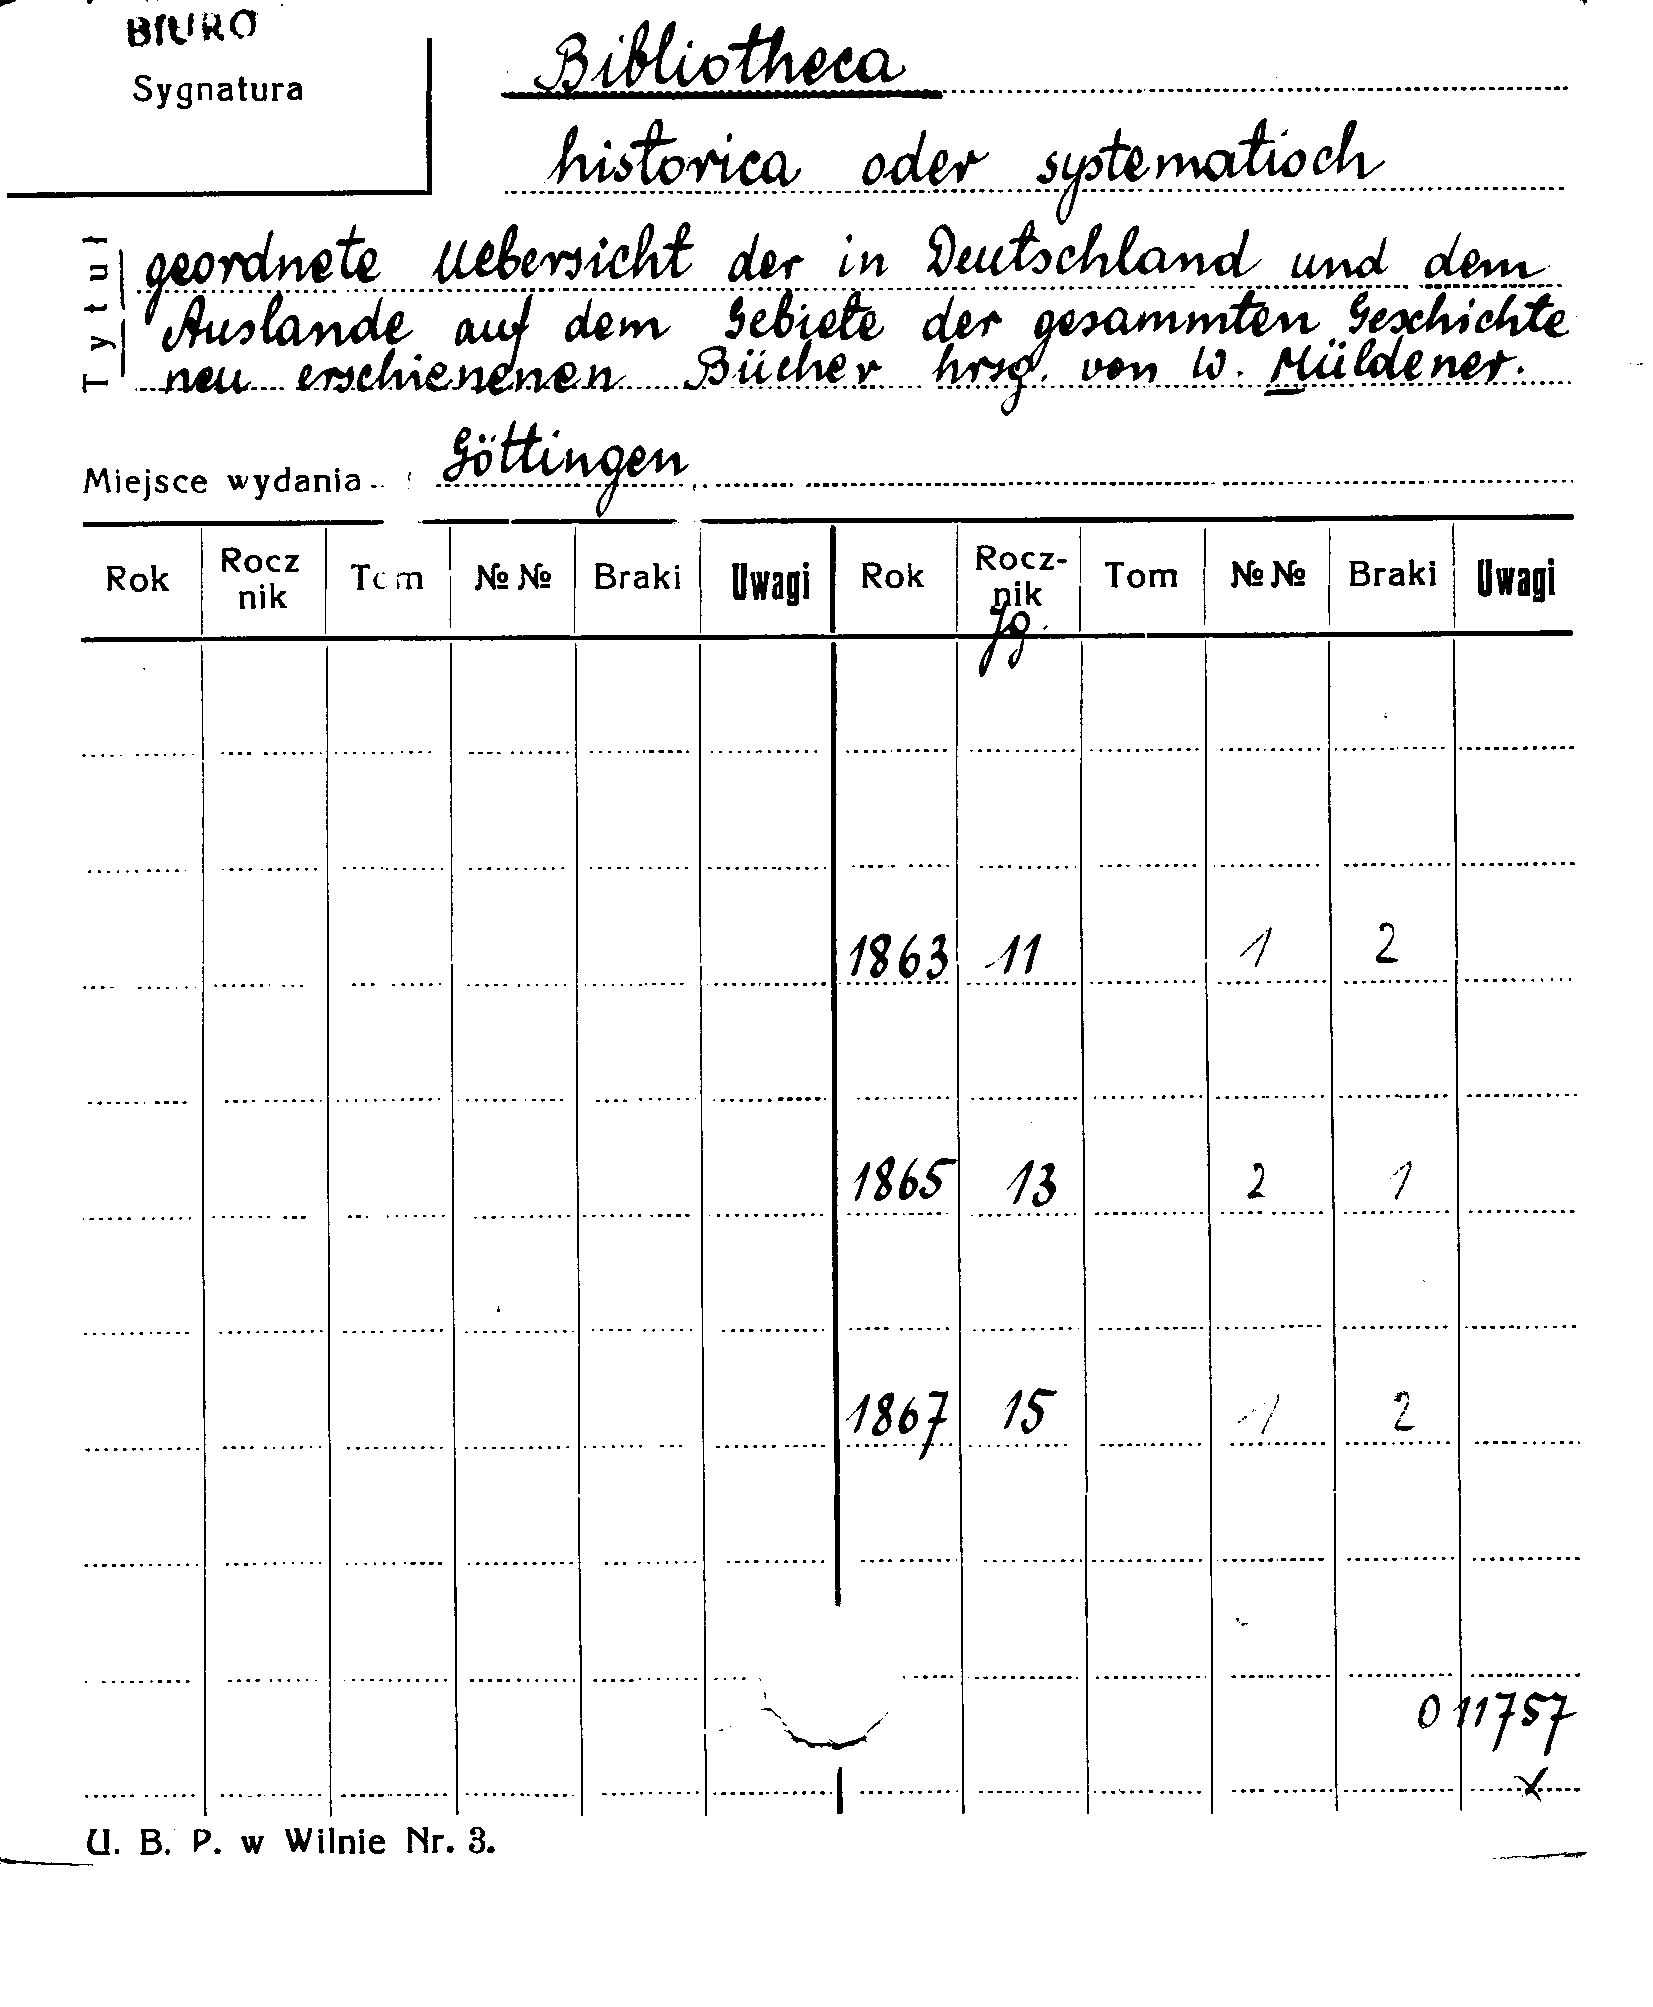 BIURO
Sygnatura
Bibliotheca
historica oder systematisch
Tytuł
geordnete Uebersicht der in Deutschland und dem
Auslande auf dem Gebiete der gesammten Geschichte
neu erschienenen Bücher hrsg. von W. Müldener.
Miejsce wydania Göttingen
Rok Rocz nik Tom №№ Braki Uwagi Rok Rocz- nik Tom №№ Braki Uwagi
Jg.
1863 11 1 2
1865 13 2 1
1867 15 1 2
011757
x
U. B. P. w Wilnie Nr. 3.